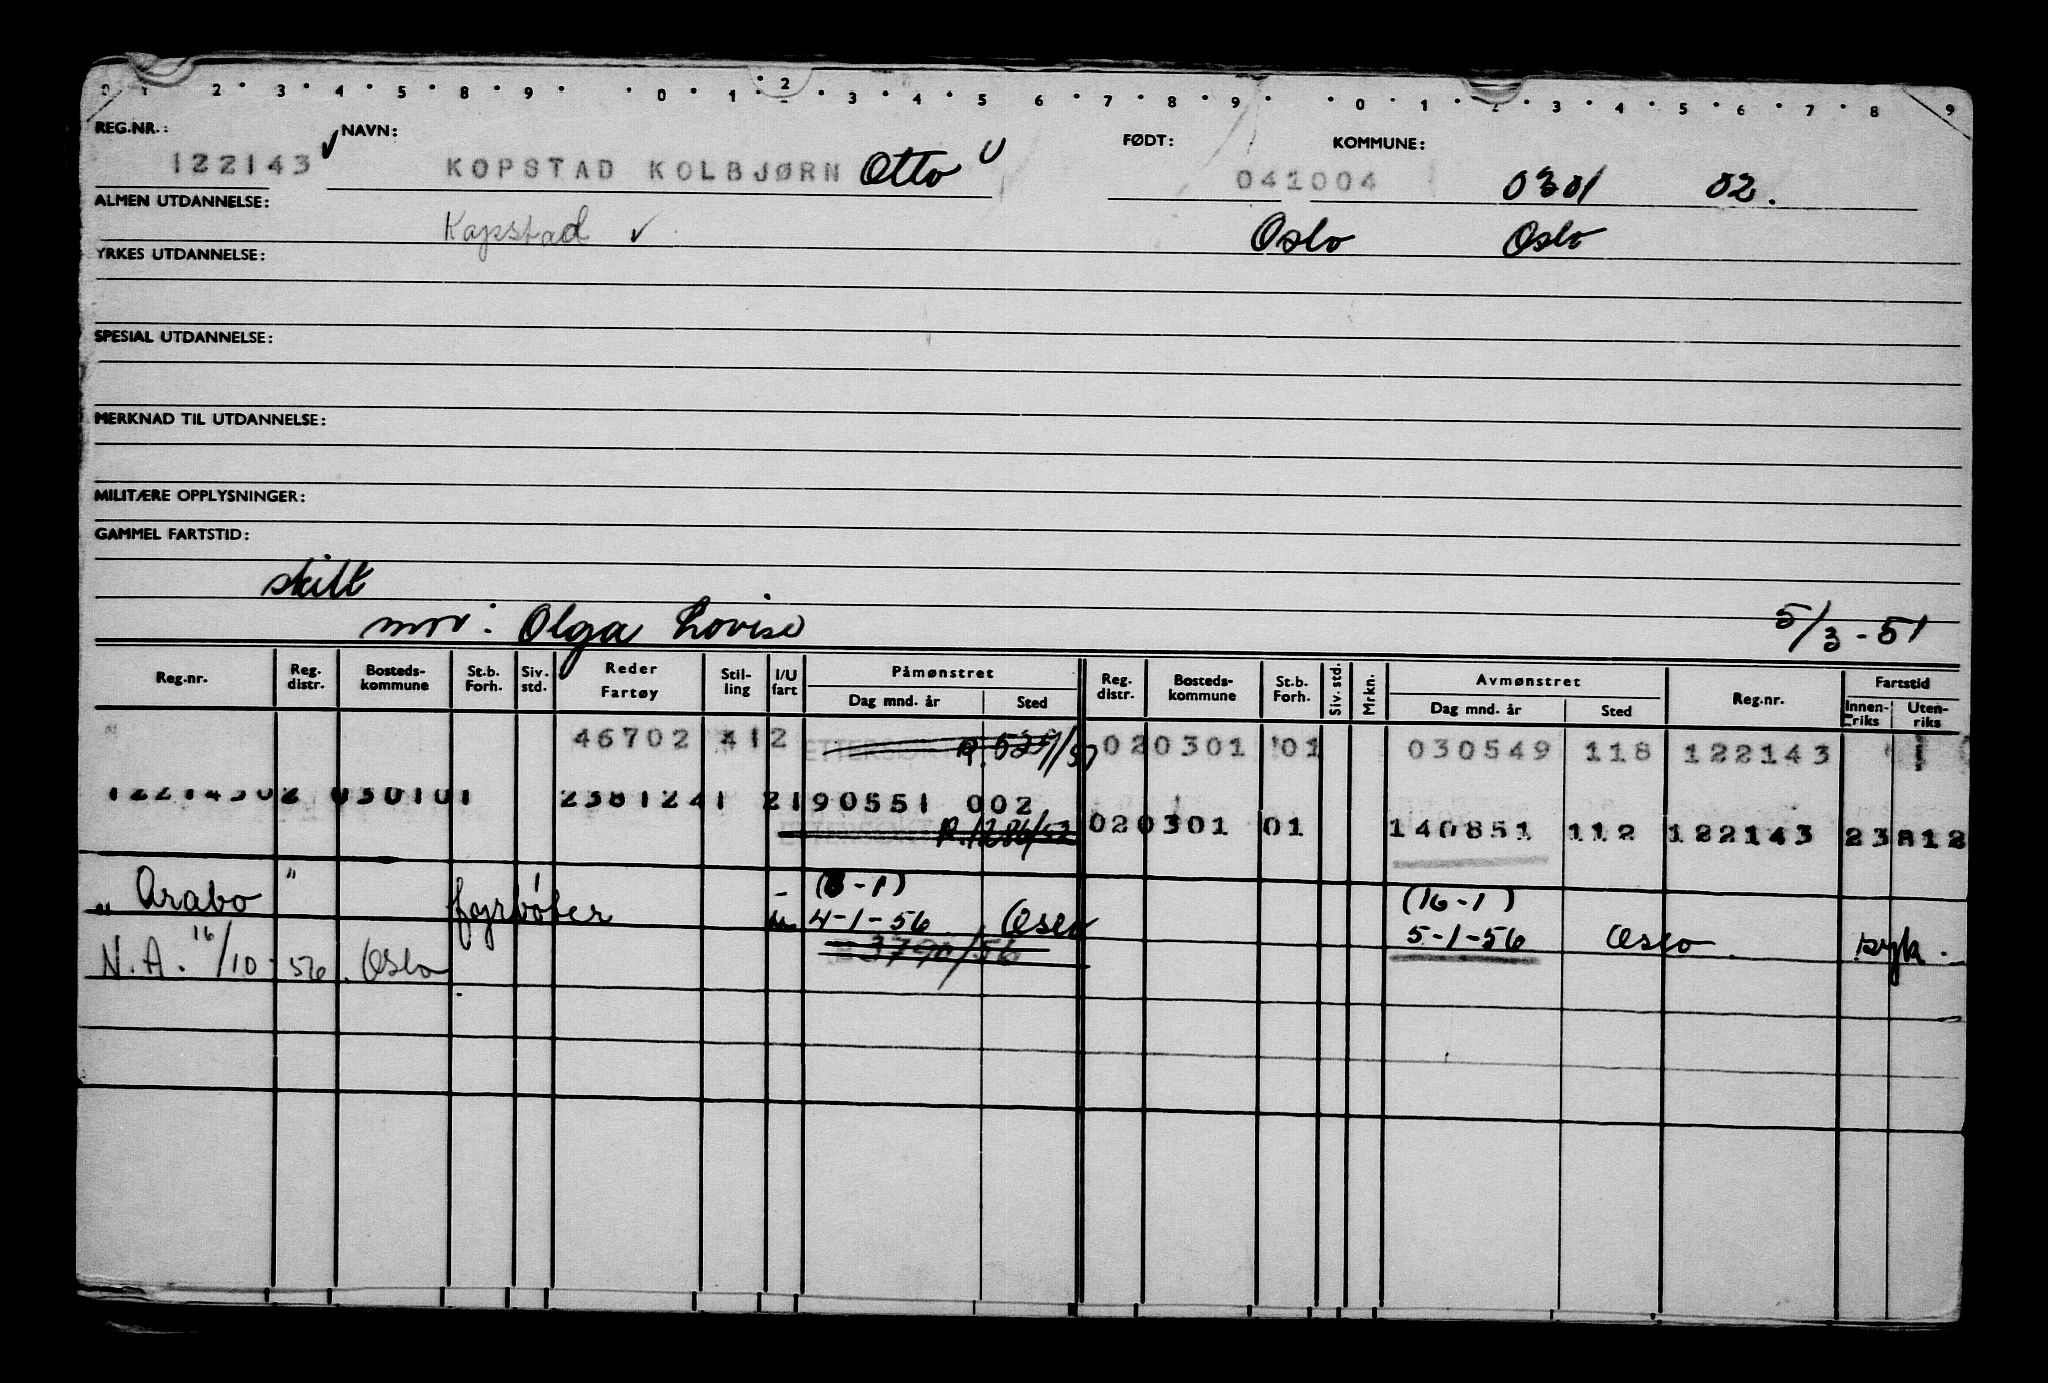 0 1 2 3 4 5 8 9 0 1 2 3 4 5 6 7 8 9 0 1 2 3 4 5 6 7 8 9
REG.NR.: NAVN: FØDT: KOMMUNE:
122143 KOPSTAD KOLBJØRN Otto 041004 0301 02.
ALMEN UTDANNELSE: Kopstad Oslo Oslo
YRKES UTDANNELSE:
SPESIAL UTDANNELSE:
MERKNAD TIL UTDANNELSE:
MILITÆRE OPPLYSNINGER:
GAMMEL FARTSTID:
skilt
mor: Olga Lovise 5/3-51
Reg.nr. Reg. distr. Bosteds-kommune St.b. Forh. Siv. std. Reder Fartøy Stil-ling I/U fart Påmønstret Dag mnd. år Sted Reg. distr. Bosteds-kommune St.b. Forh. Siv. std. Mrkn. Avmønstret Dag mnd. år Sted Reg.nr. Fartstid Innen-riks Uten-riks
46702 412 020301 01 030549 118 122143
122143 02 0301 01 238124 1 2 190551 002
R.1286/52 020301 01 140851 112 122143 23812
" Arabo " fyrbøter u (3-1) 4-1-56 Oslo (16-1) 5-1-56 Oslo syk.
N.A. 16/10-56. Oslo